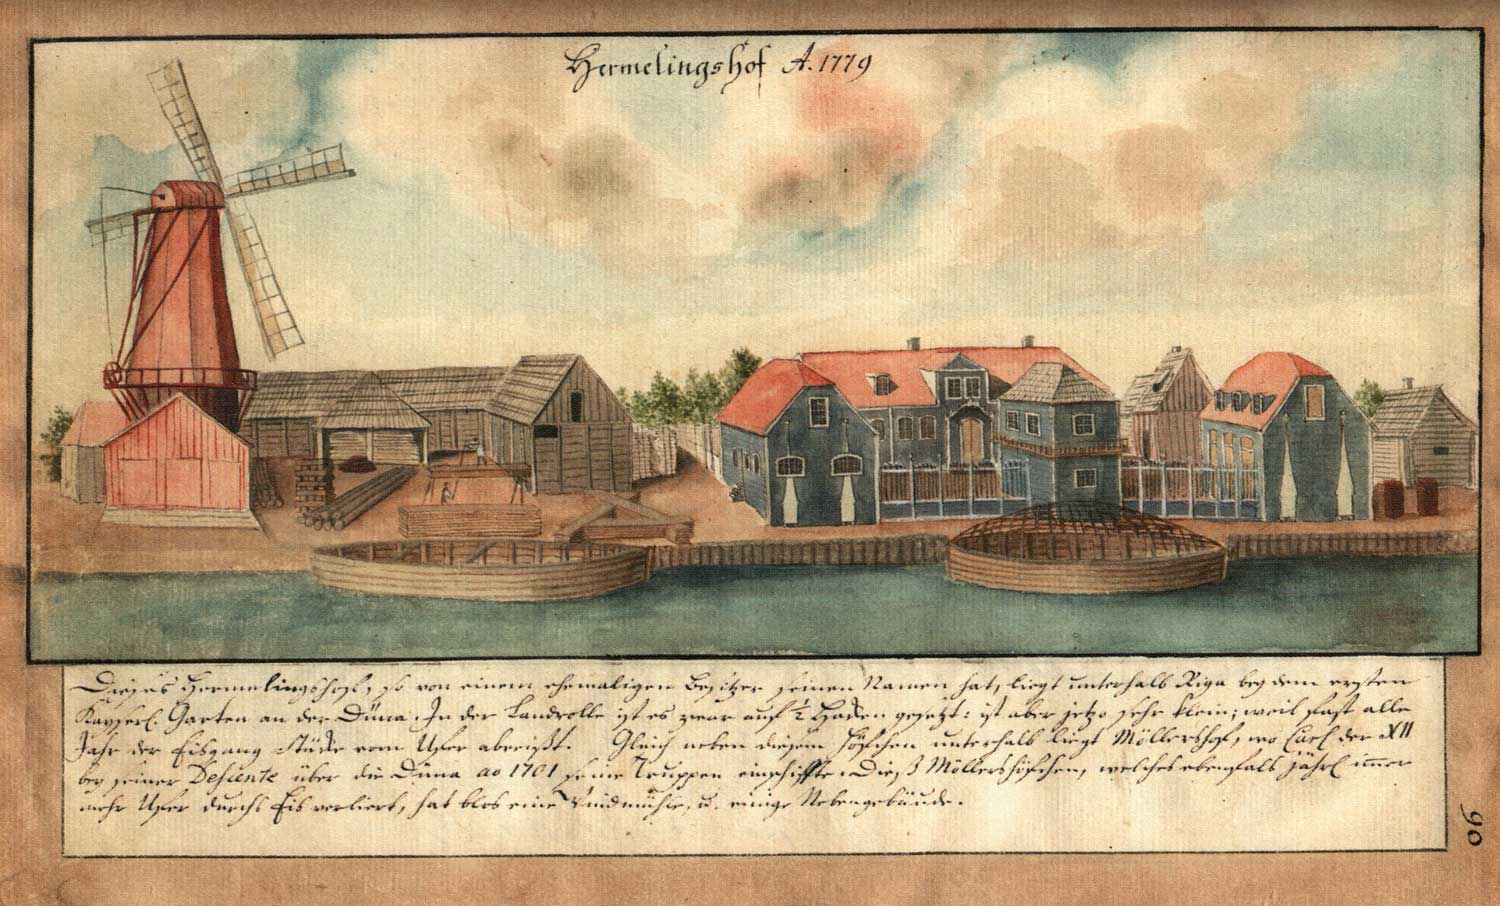 Hermelingshof A. 1779
Dieses Hermelingshof, so von einem ehemaligen Besitzer seinen Namen hat, liegt unterhalb Riga bey dem ersten
Kayserl. Garten an der Düna. In der Landrolle ist es zwar auf ½ Haken gesetzt: ist aber jetzo sehr klein; weil fast alle
Jahr der Eisgang Stücke vom Ufer abreißt. Gleich neben diesem Höfchen unterhalb liegt Möllershof, wo Carl der XII
bey seiner Descente über die Düna ao 1701 seine Truppen einschiffte. Dieß Möllershöfchen, welches ebenfals jährl immer
mehr Ufer durchs Eis verliert, hat blos eine Windmühle, u. einige Nebengebäude.
90